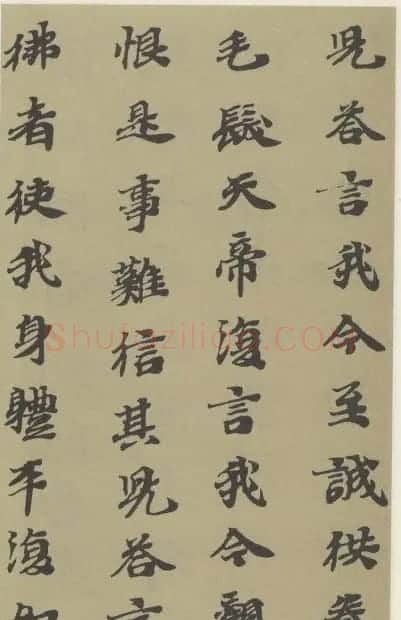 兒答言我今至誠供養
毛髮天帝復言我今觀
恨是事難信其兒答言
佛者使我身體平復